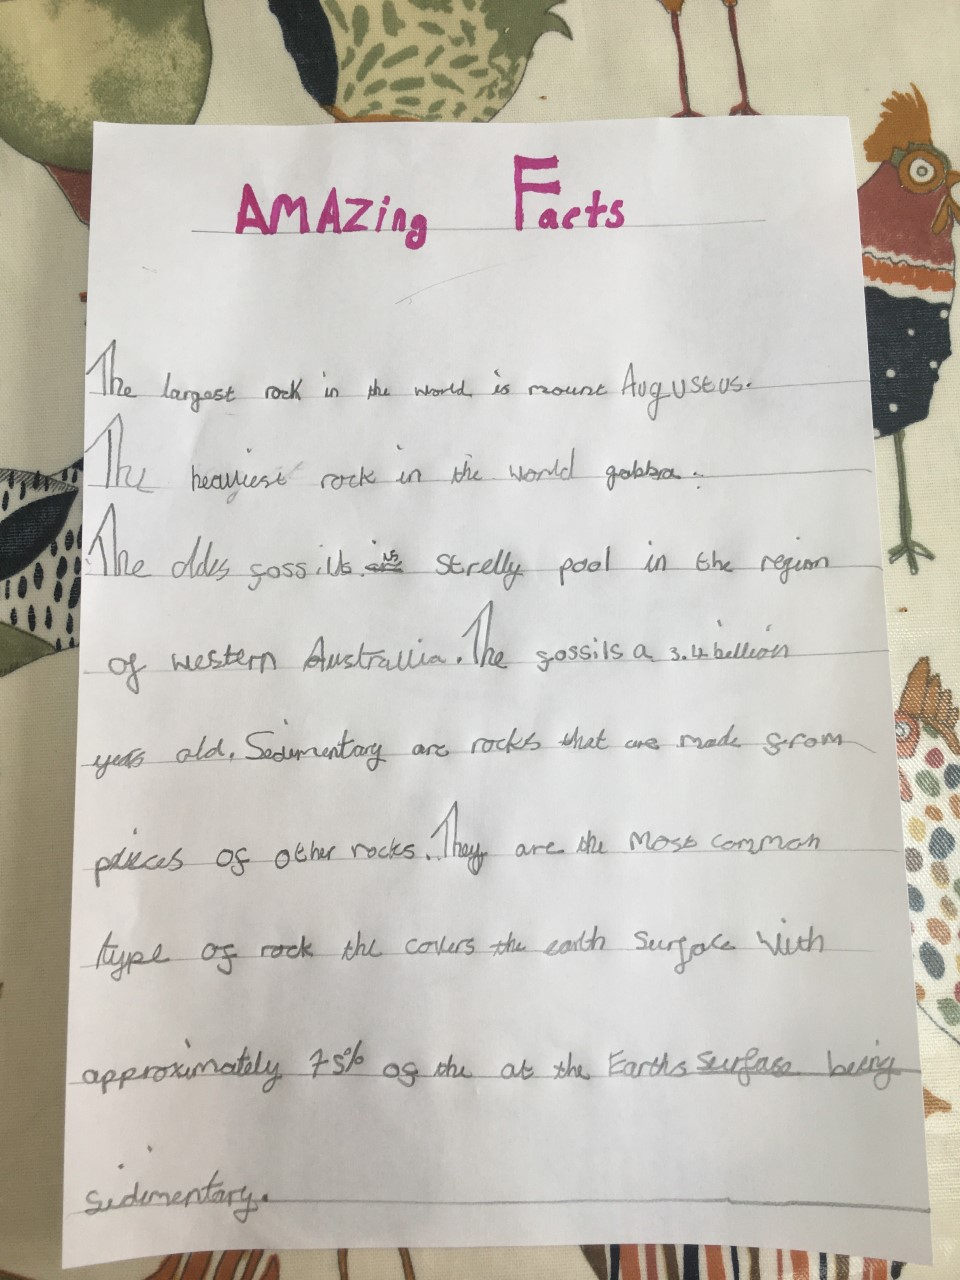 AMAZing Facts
The largest rock in the world is mount Augustus.
The heaviest rock in the world gabba.
The oldes fossils is strelly pool in the region
of western Australlia. The fossils a 3.4 billion
years old. Sedimentary are rocks that are made from
pieces of other rocks. They are the most common
type of rock the covers the earth surface with
approximately 75% of the at the Earths surfase being
sidimentary.